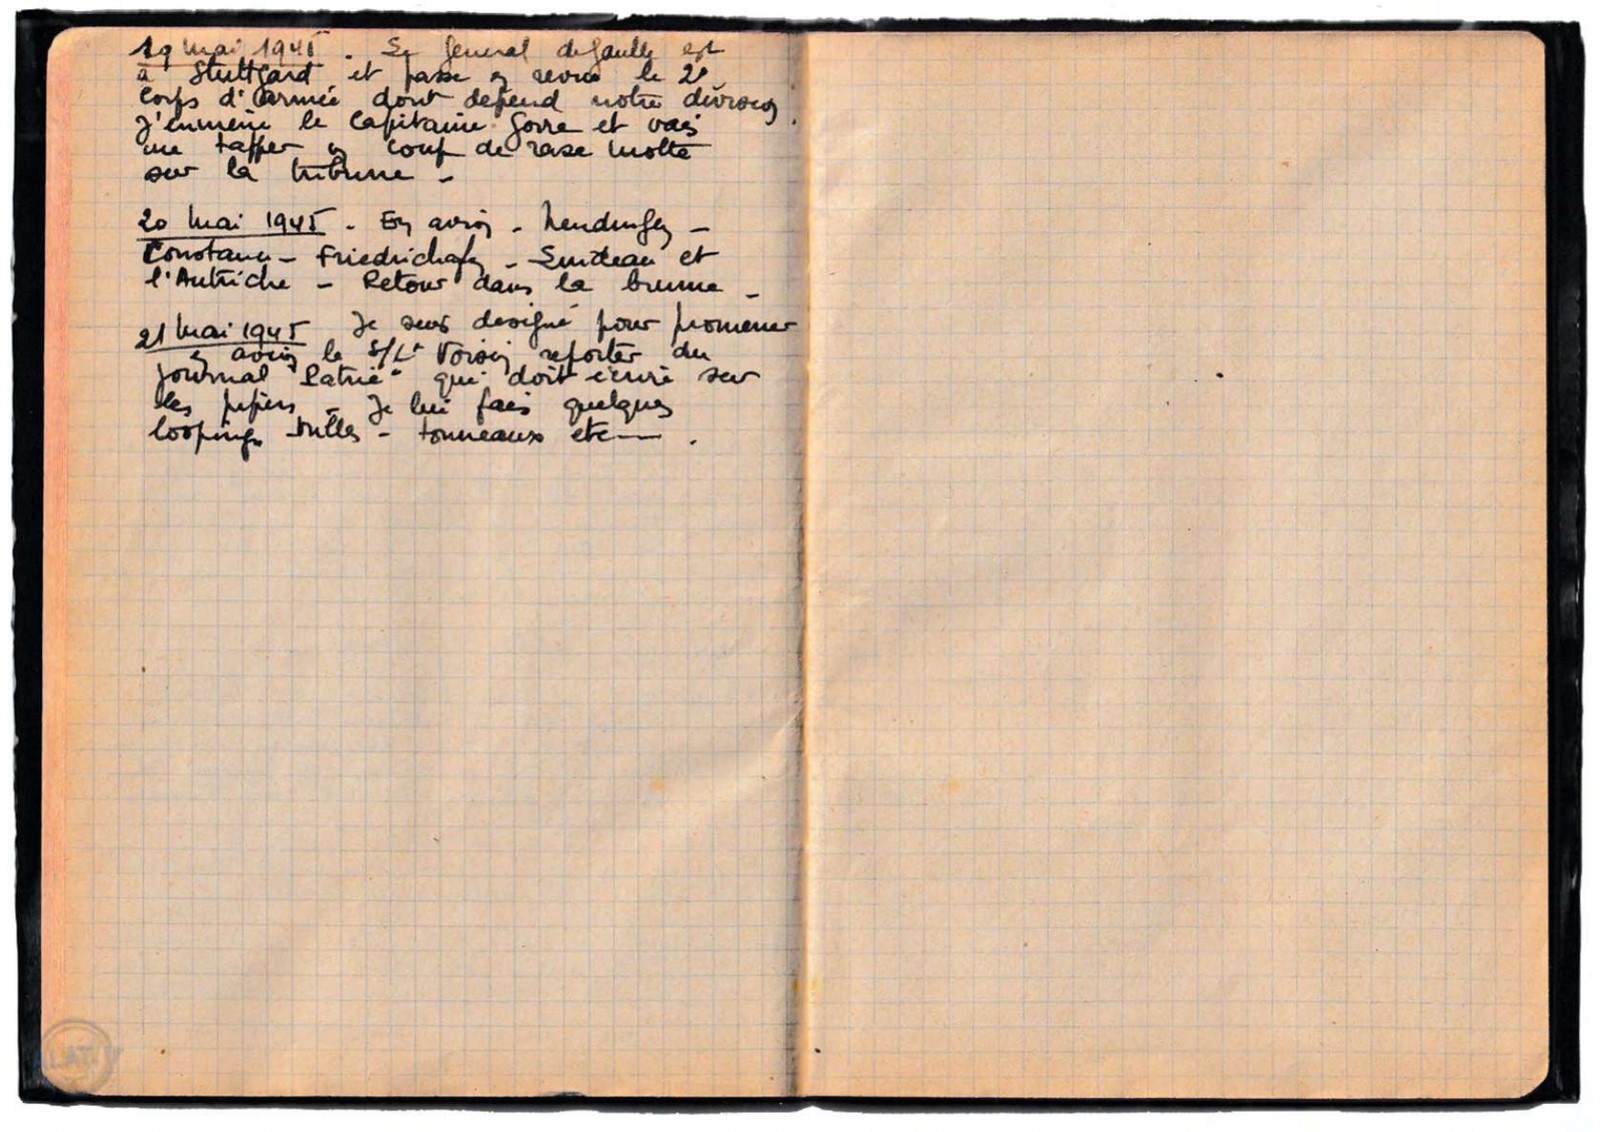 19 mai 1945. Le General de Gaulle est
à Stuttgard et passe en revue le 2e
Corps d'Armée dont dépend notre division.
J'emmène le Capitaine Gorre et vais
me tapper un coup de rase motte
sur la tribune -
20 Mai 1945. En avion - -
Constance - Friedrichafen - Lindeau et
l'Autriche - Retour dans la brume -
21 Mai 1945 Je suis designé pour promener
en avion le S/Lt Voisin reporter du
journal "Patrie" qui doit écrire sur
les pipers - Je lui fais quelques
loopings vrilles - tonneaux etc - .
ALAT